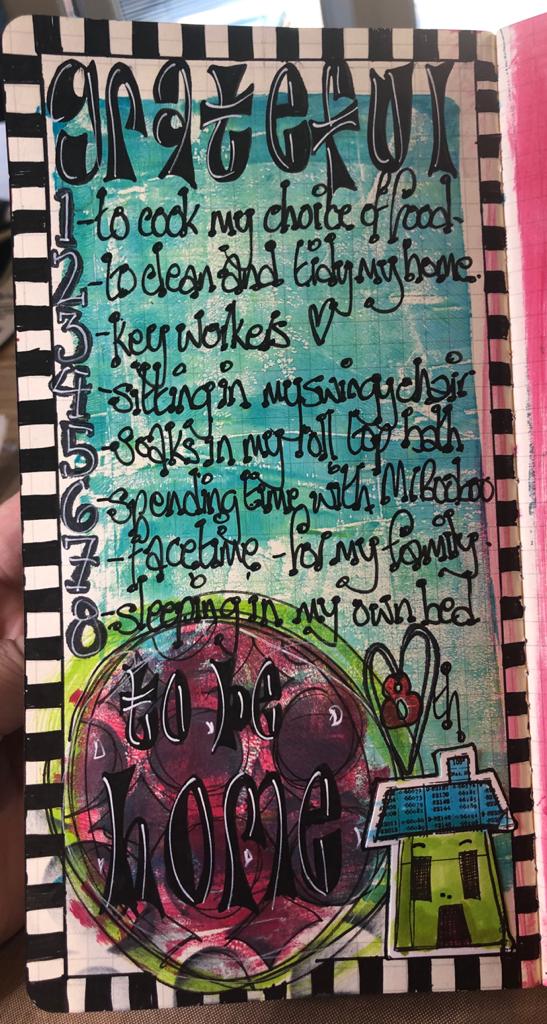 grateful
1 - to cook my choice of food -
2 - to clean and tidy my home.
3 - key workers ♡
4 - sitting in my swingy chair
5 - soaks in my roll top bath
6 - spending time with MrBoohoo
7 - facetime - for my family.
8 - sleeping in my own bed
to be
home
8th